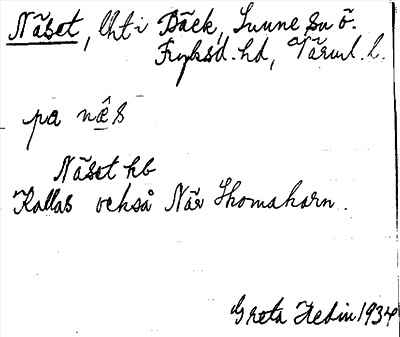 Näset, lht i Bäck, Sunne sn ö.
Fryksd. hd, Värml. l.
pa næ̂s
Näset hb
Kallas också När Thomaharn.
Greta Hedin 1934